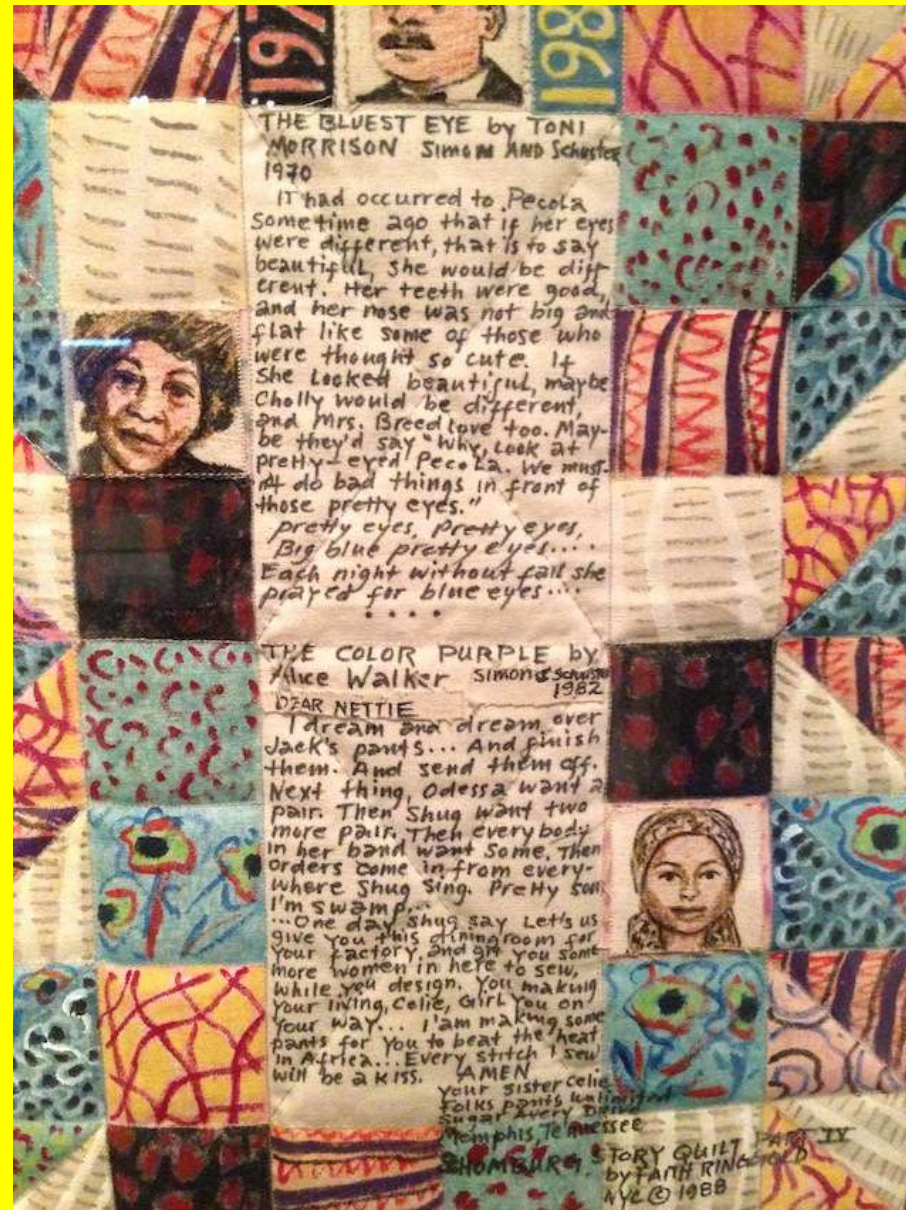 197
198
THE BLUEST EYE by TONI
MORRISON Simon AND Schuster
1970
IT had occurred to Pecola
Sometime ago that if her eyes
were different, that is to say
beautiful, She would be diff
erent. Her teeth were good,
and her nose was not big and
flat like some of those who
were thought so cute. If
She Looked beautiful, maybe
Cholly would be different,
and Mrs. Breedlove too. May-
be they'd say "Why, Look at
pretty-eyed Pecola. We must-
n't do bad things in front of
those pretty eyes."
Pretty eyes, Pretty eyes,
Big blue pretty eyes....
Each night without fail she
prayed for blue eyes....
....
THE COLOR PURPLE by
Alice Walker Simon & Schuster
1982
DEAR NETTIE
I dream and dream over
Jack's pants... And finish
them. And send them off.
Next thing, Odessa want a
pair. Then Shug want two
more pair. Then everybody
in her band want Some. Then
orders come in from every-
where Shug Sing. Pretty soon
I'm swamp...
...One day Shug say Let's us
give you this diningroom for
your factory, and git you some
more women in here to sew,
while you design. You making
your living, Celie, Girl You on
your way... I'am making some
pants for you to beat the heat
in Africa... Every stitch I sew
will be a kiss. AMEN
your sister Celie
Folks pants unlimited
Sugar Avery Drive
Memphis, Tennessee
SCHOMBURG STORY QUILT PART IV
by FAITH RINGGOLD
NYC © 1988